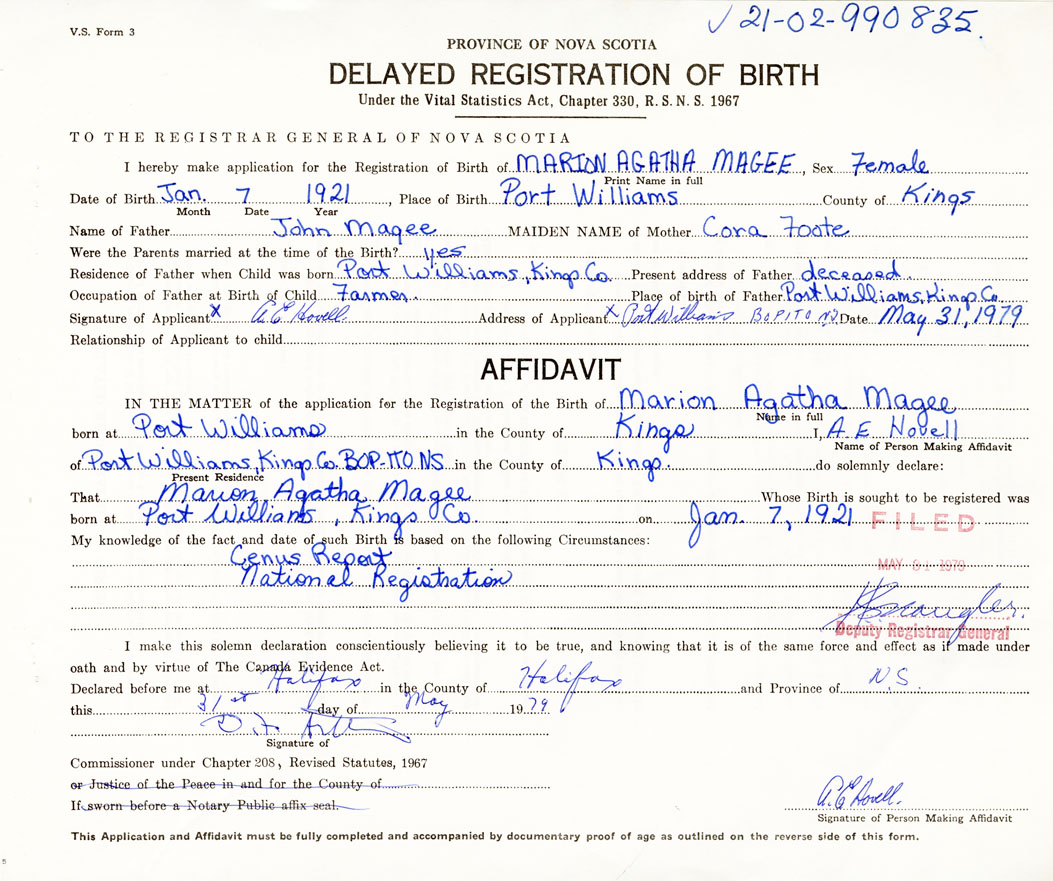 V.S. Form 3
✓ 21-02-990835.
PROVINCE OF NOVA SCOTIA
DELAYED REGISTRATION OF BIRTH
Under the Vital Statistics Act, Chapter 330, R.S.N.S. 1967
TO THE REGISTRAR GENERAL OF NOVA SCOTIA
I hereby make application for the Registration of Birth of MARION AGATHA MAGEE, Sex Female
Print Name in full
Date of Birth Jan. 7 1921, Place of Birth Port Williams County of Kings
Month Date Year
Name of Father John Magee MAIDEN NAME of Mother Cora Foote
Were the Parents married at the time of the Birth? yes
Residence of Father when Child was born Port Williams, Kings Co. Present address of Father deceased.
Occupation of Father at Birth of Child Farmer. Place of birth of Father Port Williams, Kings Co.
Signature of Applicant X A E Hovell. Address of Applicant X Port Williams BOP ITO NS Date May 31, 1979
Relationship of Applicant to child
AFFIDAVIT
IN THE MATTER of the application for the Registration of the Birth of Marion Agatha Magee
Name in full
born at Port Williams in the County of Kings I, A E Hovell
Name of Person Making Affidavit
of Port Williams, Kings Co. BOP-ITO NS in the County of Kings. do solemnly declare:
Present Residence
That Marion Agatha Magee Whose Birth is sought to be registered was
born at Port Williams, Kings Co. on Jan. 7, 1921
FILED
My knowledge of the fact and date of such Birth is based on the following Circumstances:
Cenus Report
MAY 31 1979
National Registration
Deputy Registrar General
I make this solemn declaration conscientiously believing it to be true, and knowing that it is of the same force and effect as if made under
oath and by virtue of The Canada Evidence Act.
Declared before me at Halifax in the County of Halifax and Province of N.S.
this 31st day of May 1979
Signature of
Commissioner under Chapter 208, Revised Statutes, 1967
or Justice of the Peace in and for the County of
If sworn before a Notary Public affix seal.
A E Hovell.
Signature of Person Making Affidavit
This Application and Affidavit must be fully completed and accompanied by documentary proof of age as outlined on the reverse side of this form.
5